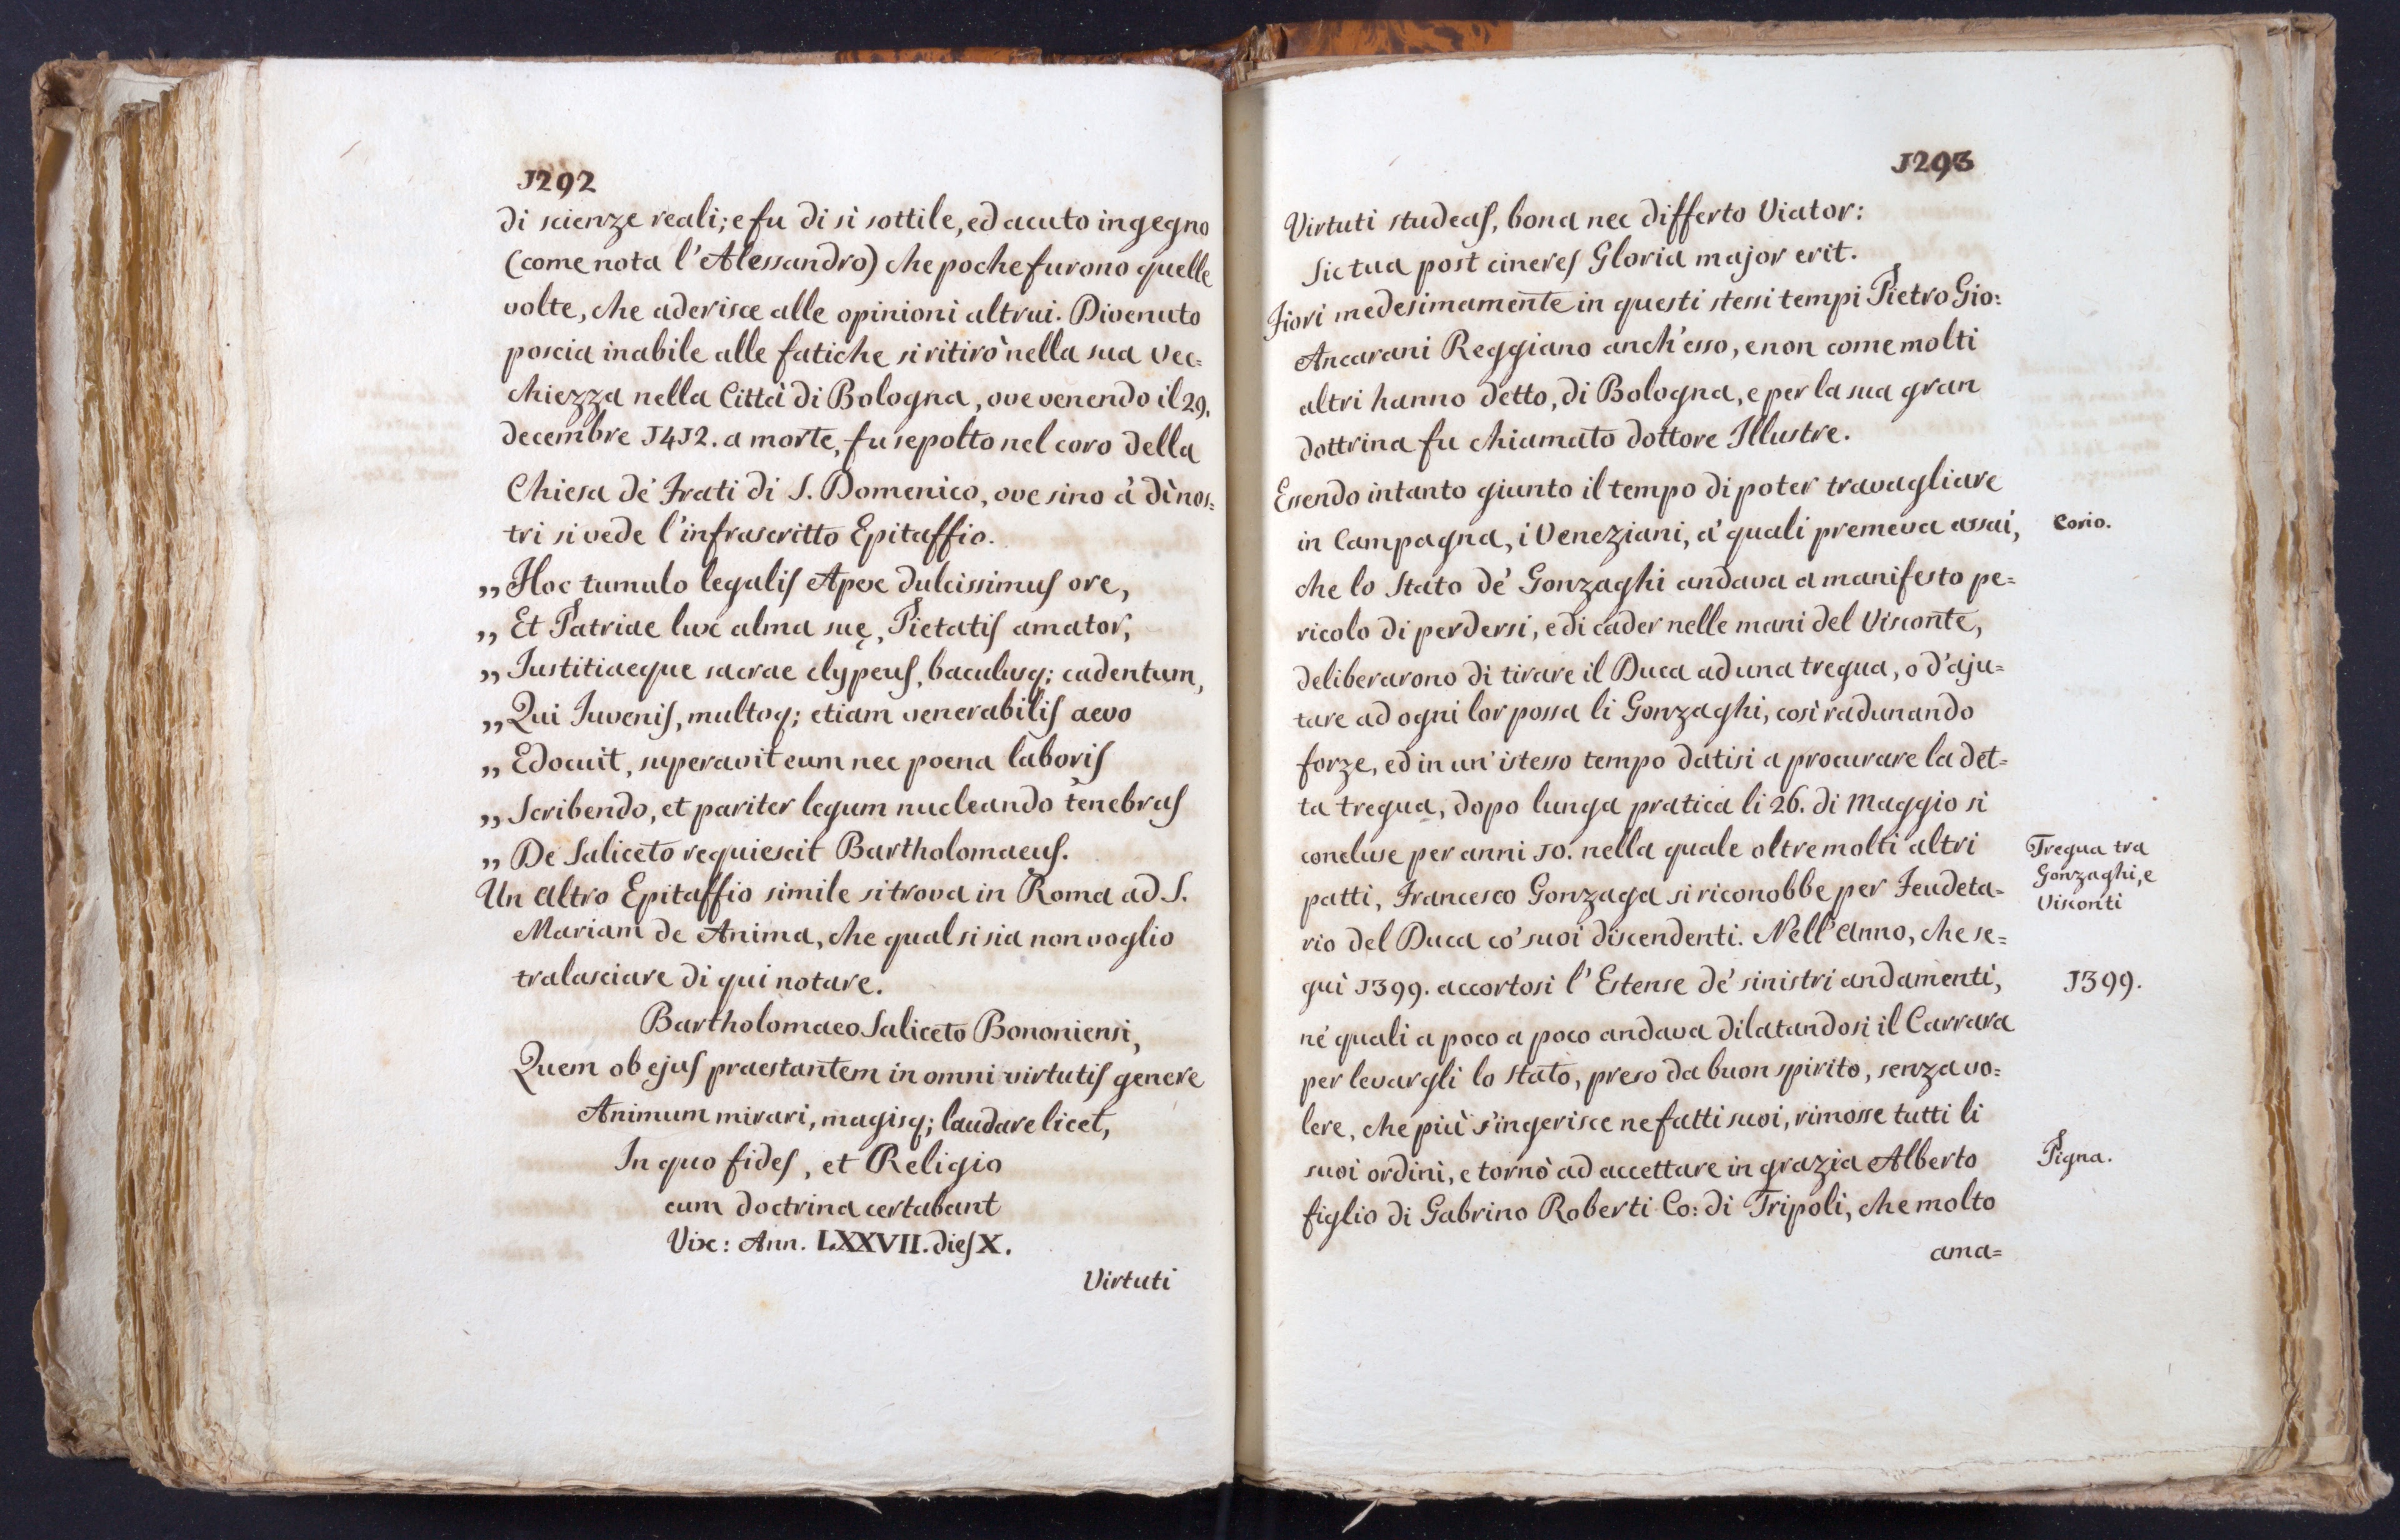 1292
di scienze reali; e fu di sì sottile, ed acuto ingegno
(come nota l'Alessandro) che poche furono quelle
volte, che aderisce alle opinioni altrui. Divenuto
poscia inabile alle fatiche si ritirò nella sua vec=
chiezza nella Città di Bologna, ove venendo il 29.
decembre 1412. a morte, fu sepolto nel coro della
Chiesa de' Frati di S. Domenico, ove sino à dì nos=
tri si vede l'infrascritto Epitaffio.
„ Hoc tumulo legalis Apex dulcissimus ore,
„ Et Patriae lux alma suę, Pietatis amator,
„ Iustitiaeque sacrae clypeus, baculusq; cadentum,
„ Qui Iuvenis, multoq; etiam venerabilis aevo
„ Edocuit, superavit eum nec poena laboris
„ Scribendo, et pariter legum nucleando tenebras
„ De Saliceto requiescit Bartholomaeus.
Un altro Epitaffio simile si trova in Roma ad S.
Mariam de Anima, che qual si sia non voglio
tralasciare di qui notare.
Bartholomaeo Saliceto Bononiensi,
Quem ob ejus praestantem in omni virtutis genere
Animum mirari, magisq; laudare licet,
In quo fides, et Religio
cum doctrina certabant
Vix: Ann. LXXVII. dies X.
Virtuti
1293
Virtuti studeas, bona nec differto Viator:
Sic tua post cineres Gloria major erit.
Fiorì medesimamente in questi stessi tempi Pietro Gio:
Ancarani Reggiano anch'esso, e non come molti
altri hanno detto, di Bologna, e per la sua gran
dottrina fu chiamato dottore Illustre.
Essendo intanto giunto il tempo di poter travagliare
in Campagna, i Veneziani, a' quali premeva assai,
Corio.
che lo Stato de' Gonzaghi andava a manifesto pe=
ricolo di perdersi, e di cader nelle mani del Visconte,
deliberarono di tirare il Duca ad una tregua, o d'aju=
tare ad ogni lor possa li Gonzaghi, così radunando
forze, ed in un'istesso tempo datisi a procurare la det=
ta tregua, dopo lunga pratica li 26. di Maggio si
concluse per anni 10. nella quale oltre molti altri
Tregua tra
Gonzaghi, e
Visconti
patti, Francesco Gonzaga si riconobbe per Feudeta=
rio del Duca co' suoi discendenti. Nell'anno, che se=
guì 1399. accortosi l'Estense de' sinistri andamenti,
1399.
ne' quali a poco a poco andava dilatandosi il Carrara
per levargli lo stato, preso da buon spirito, senza vo=
lere, che più s'ingerisce ne fatti suoi, rimosse tutti li
suoi ordini, e tornò ad accettare in grazia Alberto
Pigna.
figlio di Gabrino Roberti Co: di Tripoli, che molto
ama=